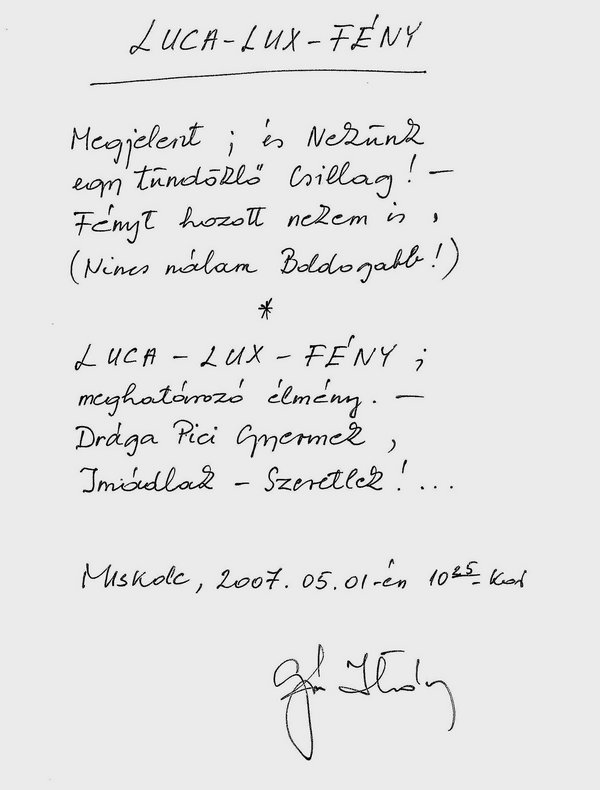 LUCA-LUX-FÉNY
Megjelent ; és Nekünk
egy tündöklő Csillag! —
Fényt hozott nekem is,
(Nincs nálam Boldogabb!)
*
LUCA - LUX - FÉNY ;
meghatározó élmény. —
Drága Pici Gyermek,
Imádlak - Szeretlek! ...
Miskolc, 2007. 05. 01-én 10²⁵-kor
István